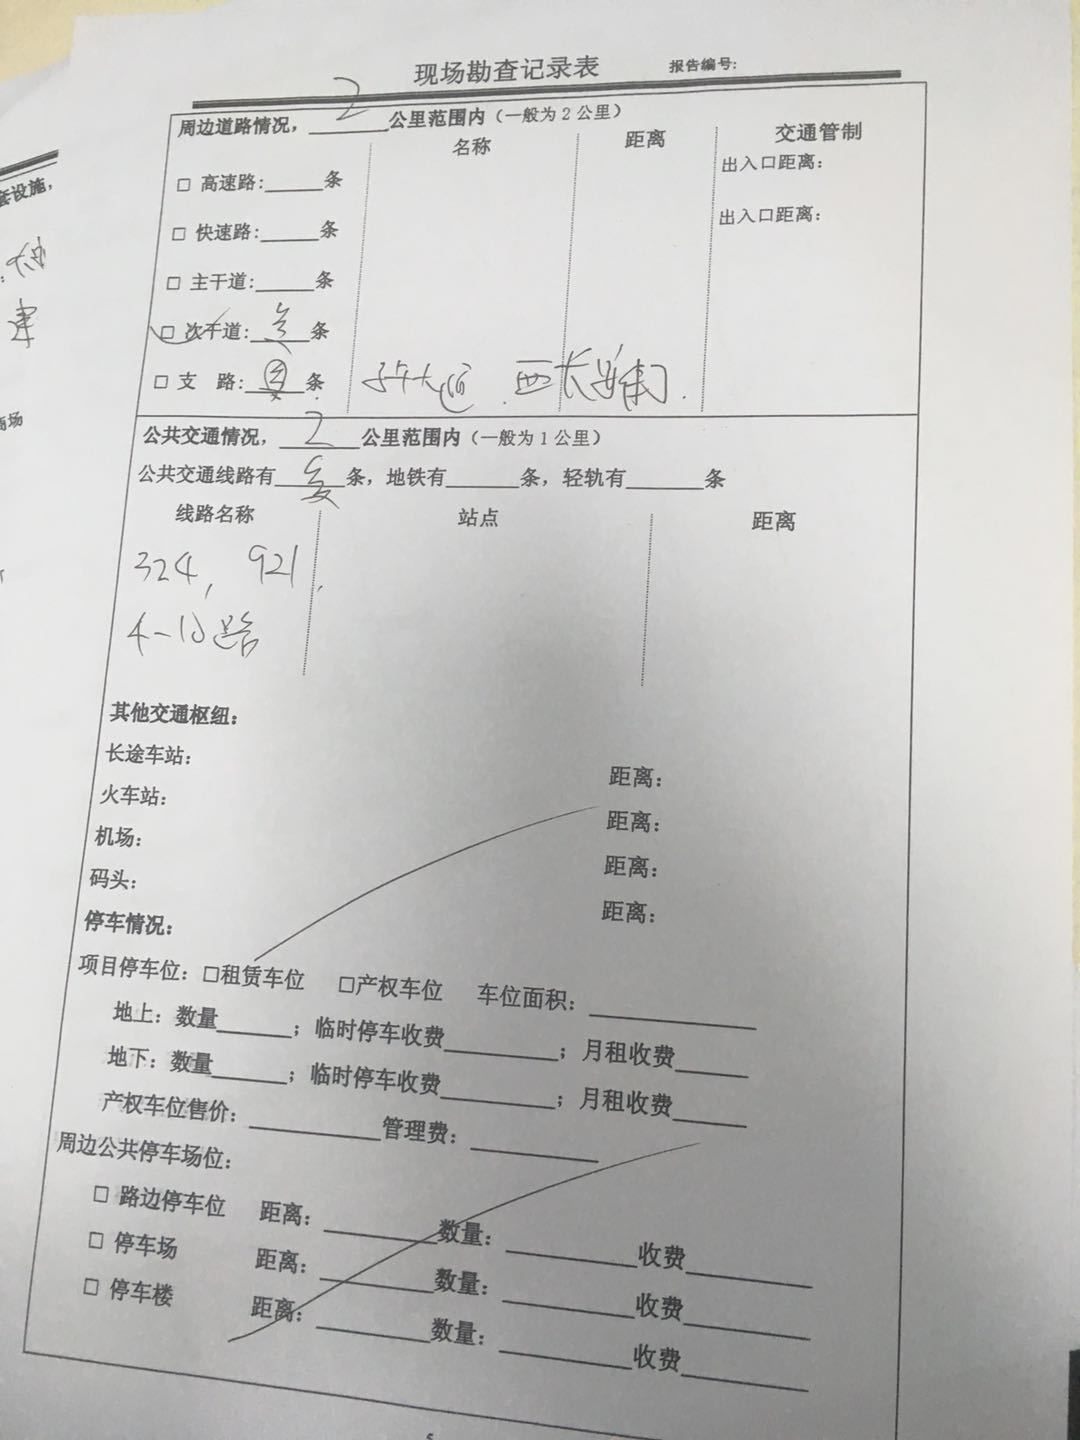 现场勘查记录表 报告编号:
周边道路情况，2公里范围内（一般为2公里）
名称 距离 交通管制
□ 高速路:______条 出入口距离：
□ 快速路:______条 出入口距离：
□ 主干道:______条
□ 次干道:______条
□ 支 路:______条 西长
公共交通情况，2公里范围内（一般为1公里）
公共交通线路有______条，地铁有______条，轻轨有______条
线路名称 站点 距离
324, 921,
4-10路
其他交通枢纽：
长途车站： 距离：
火车站： 距离：
机场： 距离：
码头： 距离：
停车情况：
项目停车位：□租赁车位 □产权车位 车位面积：______
地上：数量______；临时停车收费______；月租收费______
地下：数量______；临时停车收费______；月租收费______
产权车位售价：______管理费：______
周边公共停车场位：
□ 路边停车位 距离：______数量：______收费______
□ 停车场 距离：______数量：______收费______
□ 停车楼 距离：______数量：______收费______
5
套设施，
建
商场